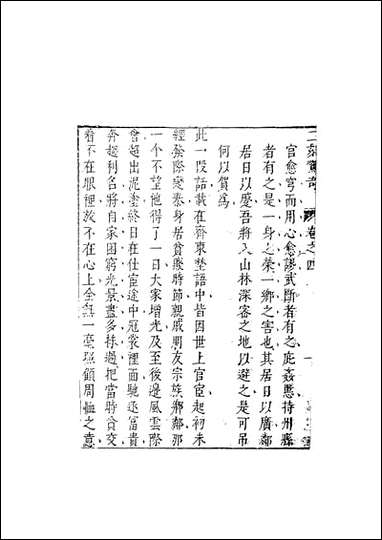 二刻驚奇　卷之四　一
官愈穷而用心愈謬武斷者有之庇姦慝持州縣
者有之是一身之榮一鄉之害也其居日以廣鄰
居日以蹙吾將入山林深密之地以避之是可吊
何以賀爲
此一段話載在齊東埜語中皆因世上官宦起初未
經發際變泰身居貧賤時節親戚朋友宗族鄉鄰那
一个不望他得了一日大家增光及至後邊風雲際
會超出泥塗終日在仕宦途中冠裳裡面馳逐富貴
奔趨利名將自家困窮光景盡多抹過把當時貧交
看不在眼裡放不在心上全無一毫照顧周恤之意